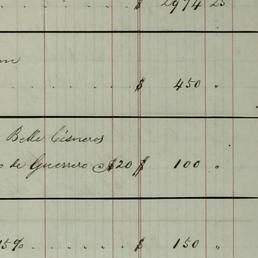 $ 2974 25
$ 450 "
Belle Cisneros
de Guerrero @ $20 $ 100 "
15% $ 150 "